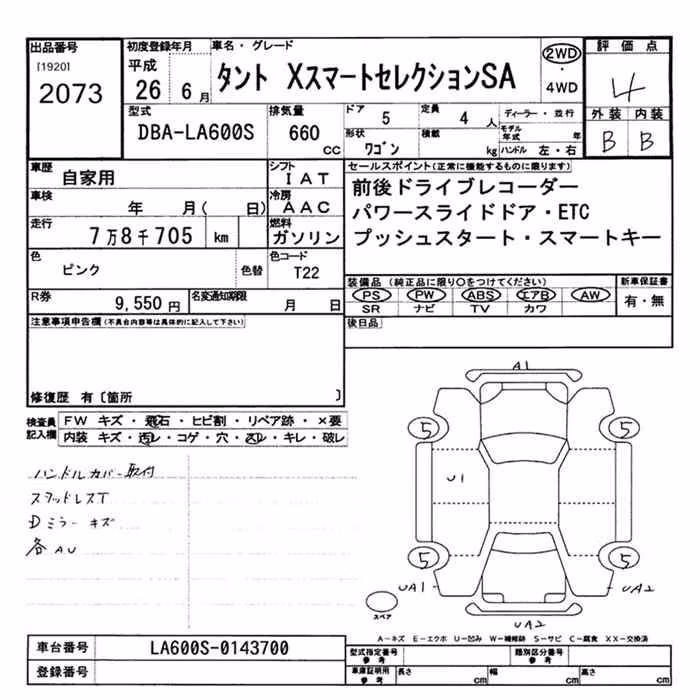 出品番号
[1920]
2073
初度登録年月
平成
26 6月
車名・グレード
タント XスマートセレクションSA
2WD
・
4WD
評価点
4
外装 内装
B B
型式
DBA-LA600S
排気量
660
cc
ドア
5
定員
4人
形状
ワゴン
積載
kg
ディーラー・並行
モデル年式 年
ハンドル 左・右
車歴
自家用
シフト
IAT
車検
年 月( 日)
冷房
AAC
走行
7万8千705 km
燃料
ガソリン
色
ピンク
色替
色コード
T22
R券
9,550円
名変通知期限
月 日
セールスポイント(正常に機能するものに限ります)
前後ドライブレコーダー
パワースライドドア・ETC
プッシュスタート・スマートキー
装備品(純正品に限り○をつけてください)
PS PW ABS エアB AW
SR ナビ TV カワ
新車保証書
有・無
後日品
注意事項申告欄(不具合内容等は具体的に記入して下さい)
修復歴 有〔箇所 〕
検査員記入欄
FW キズ・飛石・ヒビ割・リペア跡・×要
内装 キズ・汚レ・コゲ・穴・スレ・キレ・破レ
ハンドルカバー取付
スタッドレスT
Dミラーキズ
各AU
A1
5 5
U1
5 5
UA1 UA2
スペア
UA2
A-キズ E-エクボ U-凹み W-補修跡 S-サビ C-腐食 XX-交換済
車台番号
LA600S-0143700
登録番号
型式指定番号
参考
類別区分番号
参考
車庫証明用
参考
長さ cm
幅 cm
高さ cm